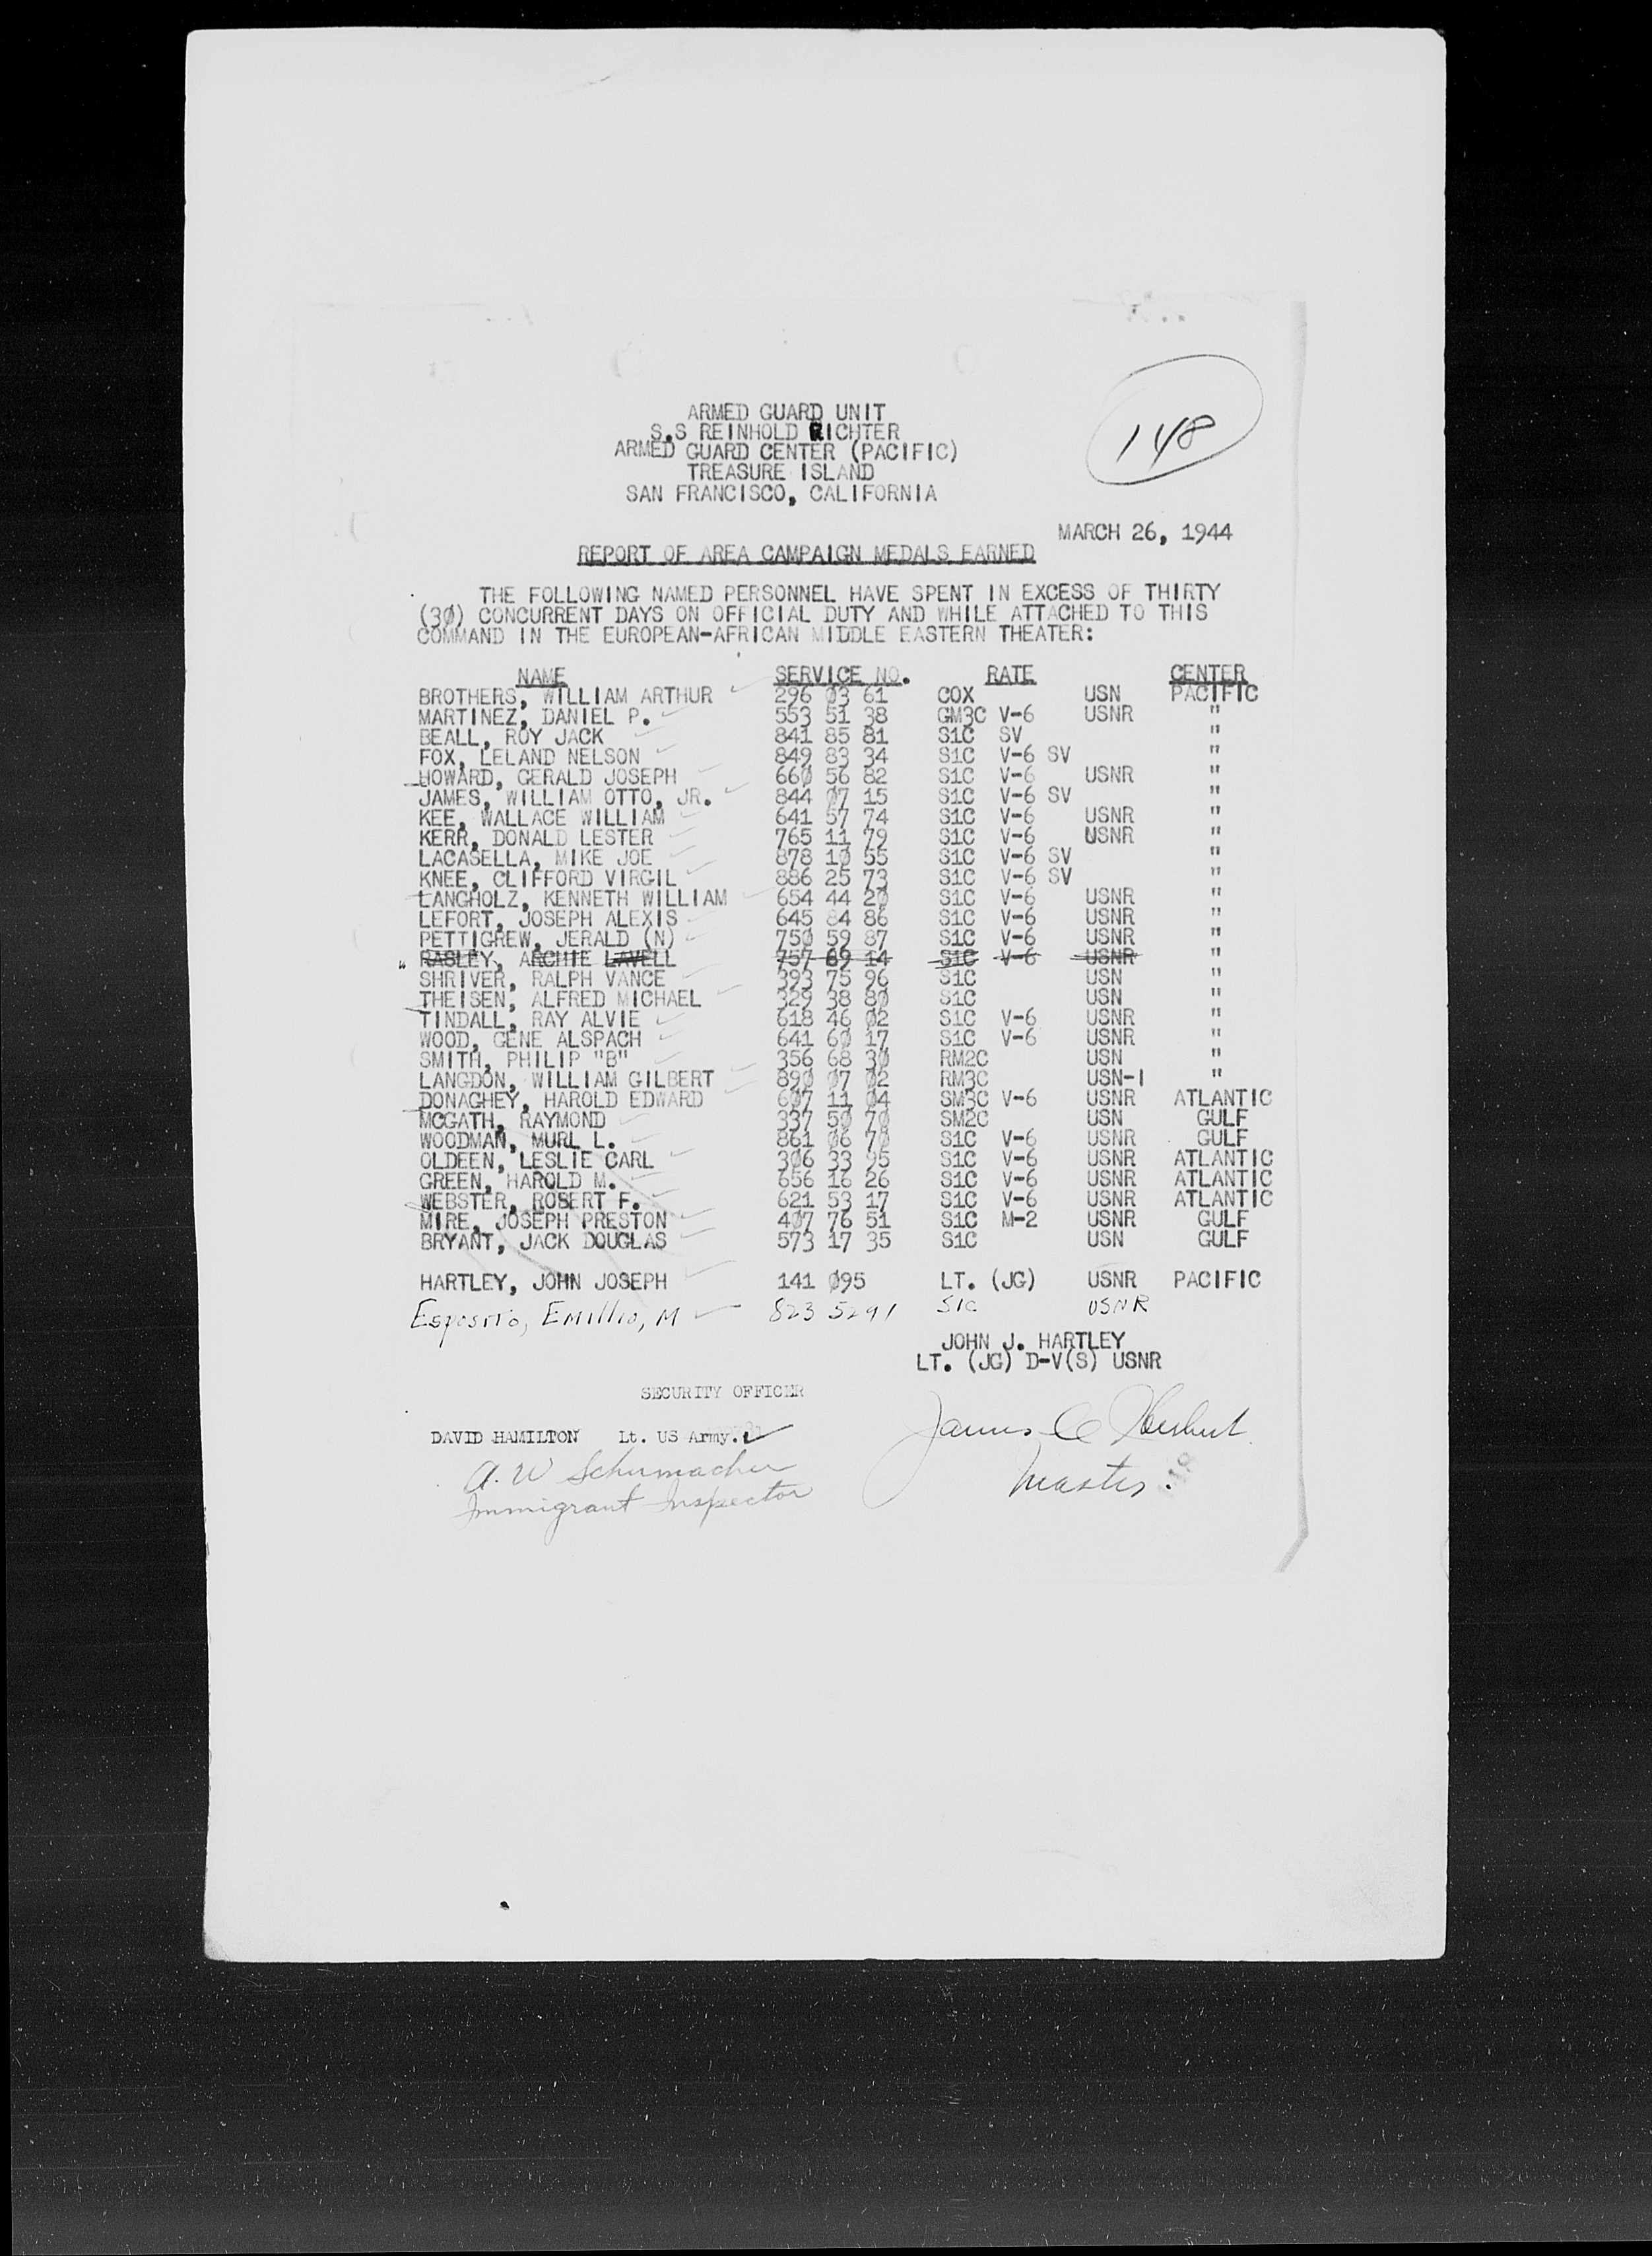 ARMED GUARD UNIT
S.S REINHOLD RICHTER
ARMED GUARD CENTER (PACIFIC)
TREASURE ISLAND
SAN FRANCISCO, CALIFORNIA
148
MARCH 26, 1944
REPORT OF AREA CAMPAIGN MEDALS EARNED
THE FOLLOWING NAMED PERSONNEL HAVE SPENT IN EXCESS OF THIRTY
(30) CONCURRENT DAYS ON OFFICIAL DUTY AND WHILE ATTACHED TO THIS
COMMAND IN THE EUROPEAN-AFRICAN MIDDLE EASTERN THEATER:
NAME SERVICE NO. RATE CENTER
BROTHERS, WILLIAM ARTHUR 296 03 61 COX USN PACIFIC
MARTINEZ, DANIEL P. 553 51 38 GM3C V-6 USNR "
BEALL, ROY JACK 841 85 81 S1C SV "
FOX, LELAND NELSON 849 83 34 S1C V-6 SV "
HOWARD, GERALD JOSEPH 660 56 82 S1C V-6 USNR "
JAMES, WILLIAM OTTO, JR. 844 07 15 S1C V-6 SV "
KEE, WALLACE WILLIAM 641 57 74 S1C V-6 USNR "
KERR, DONALD LESTER 765 11 79 S1C V-6 USNR "
LACASELLA, MIKE JOE 878 10 55 S1C V-6 SV "
KNEE, CLIFFORD VIRGIL 886 25 73 S1C V-6 SV "
LANGHOLZ, KENNETH WILLIAM 654 44 20 S1C V-6 USNR "
LEFORT, JOSEPH ALEXIS 645 84 86 S1C V-6 USNR "
PETTIGREW, JERALD (N) 750 59 87 S1C V-6 USNR "
RASLEY, ARCHIE LAVELL 757 69 14 S1C V-6 USNR "
SHRIVER, RALPH VANCE 393 75 96 S1C USN "
THEISEN, ALFRED MICHAEL 329 38 80 S1C USN "
TINDALL, RAY ALVIE 618 46 02 S1C V-6 USNR "
WOOD, GENE ALSPACH 641 60 17 S1C V-6 USNR "
SMITH, PHILIP "B" 356 68 30 RM2C USN "
LANGDON, WILLIAM GILBERT 890 07 02 RM3C USN-I "
DONAGHEY, HAROLD EDWARD 607 11 04 SM3C V-6 USNR ATLANTIC
MCGATH, RAYMOND 337 50 70 SM2C USN GULF
WOODMAN, MURL L. 861 06 70 S1C V-6 USNR GULF
OLDEEN, LESLIE CARL 306 33 95 S1C V-6 USNR ATLANTIC
GREEN, HAROLD M. 656 16 26 S1C V-6 USNR ATLANTIC
WEBSTER, ROBERT F. 621 53 17 S1C V-6 USNR ATLANTIC
MIRE, JOSEPH PRESTON 407 76 51 S1C M-2 USNR GULF
BRYANT, JACK DOUGLAS 573 17 35 S1C USN GULF
HARTLEY, JOHN JOSEPH 141 095 LT. (JG) USNR PACIFIC
Esposito, Emillio, M 823 5291 S1C USNR
JOHN J. HARTLEY
LT. (JG) D-V(S) USNR
SECURITY OFFICER
DAVID HAMILTON Lt. US Army.
James C Herbert
Master.
A. W Schumacher
Immigrant Inspector